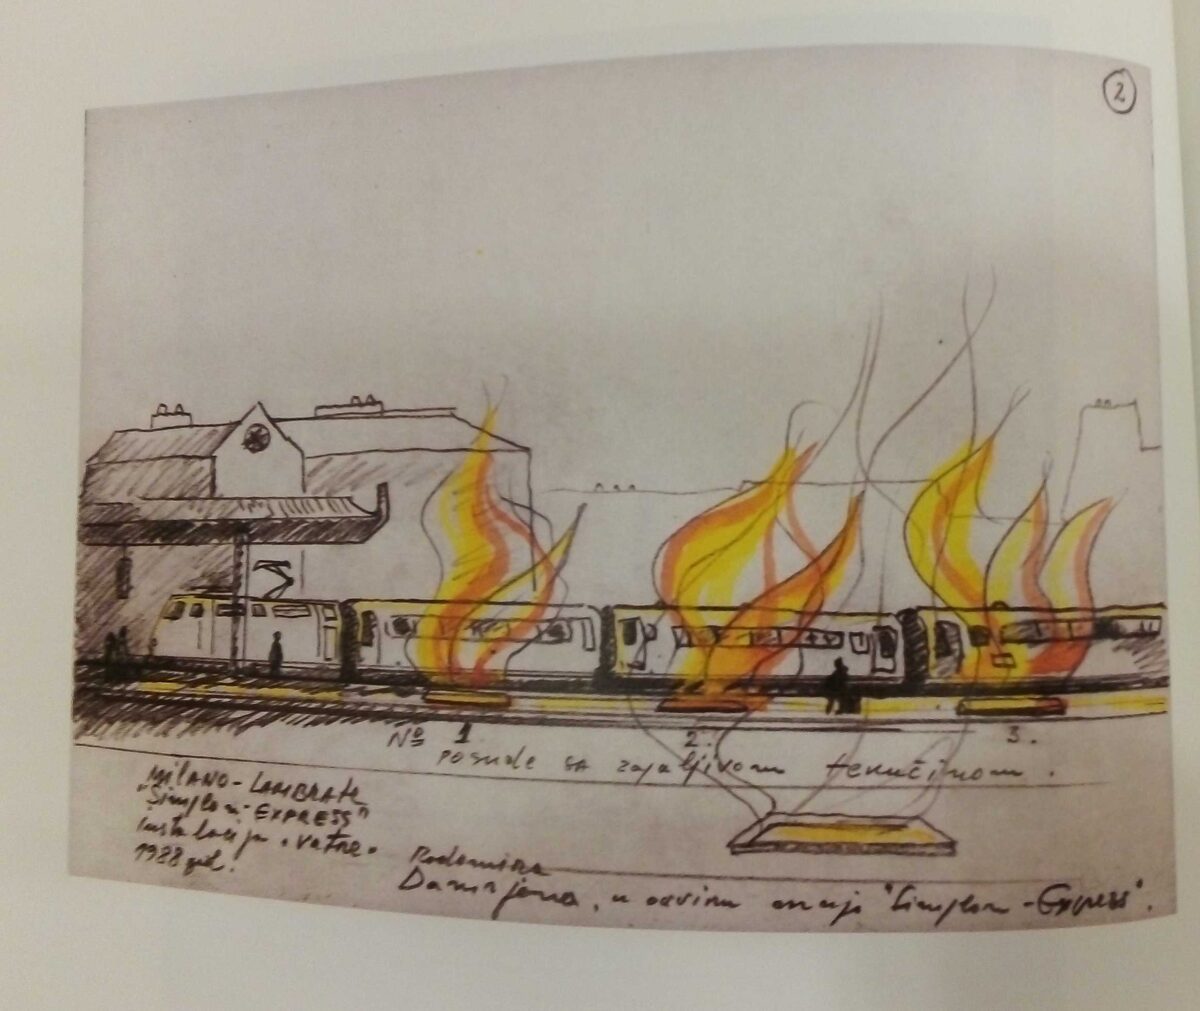 2
No 1. 2. 3.
posude sa zapaljivom tekućinom.
MILANO-LAMBRATE
"Simplon-EXPRESS"
instalacija "vatre"
1988 god.
Radomira
Damnjana, u okviru "Simplon-Express".